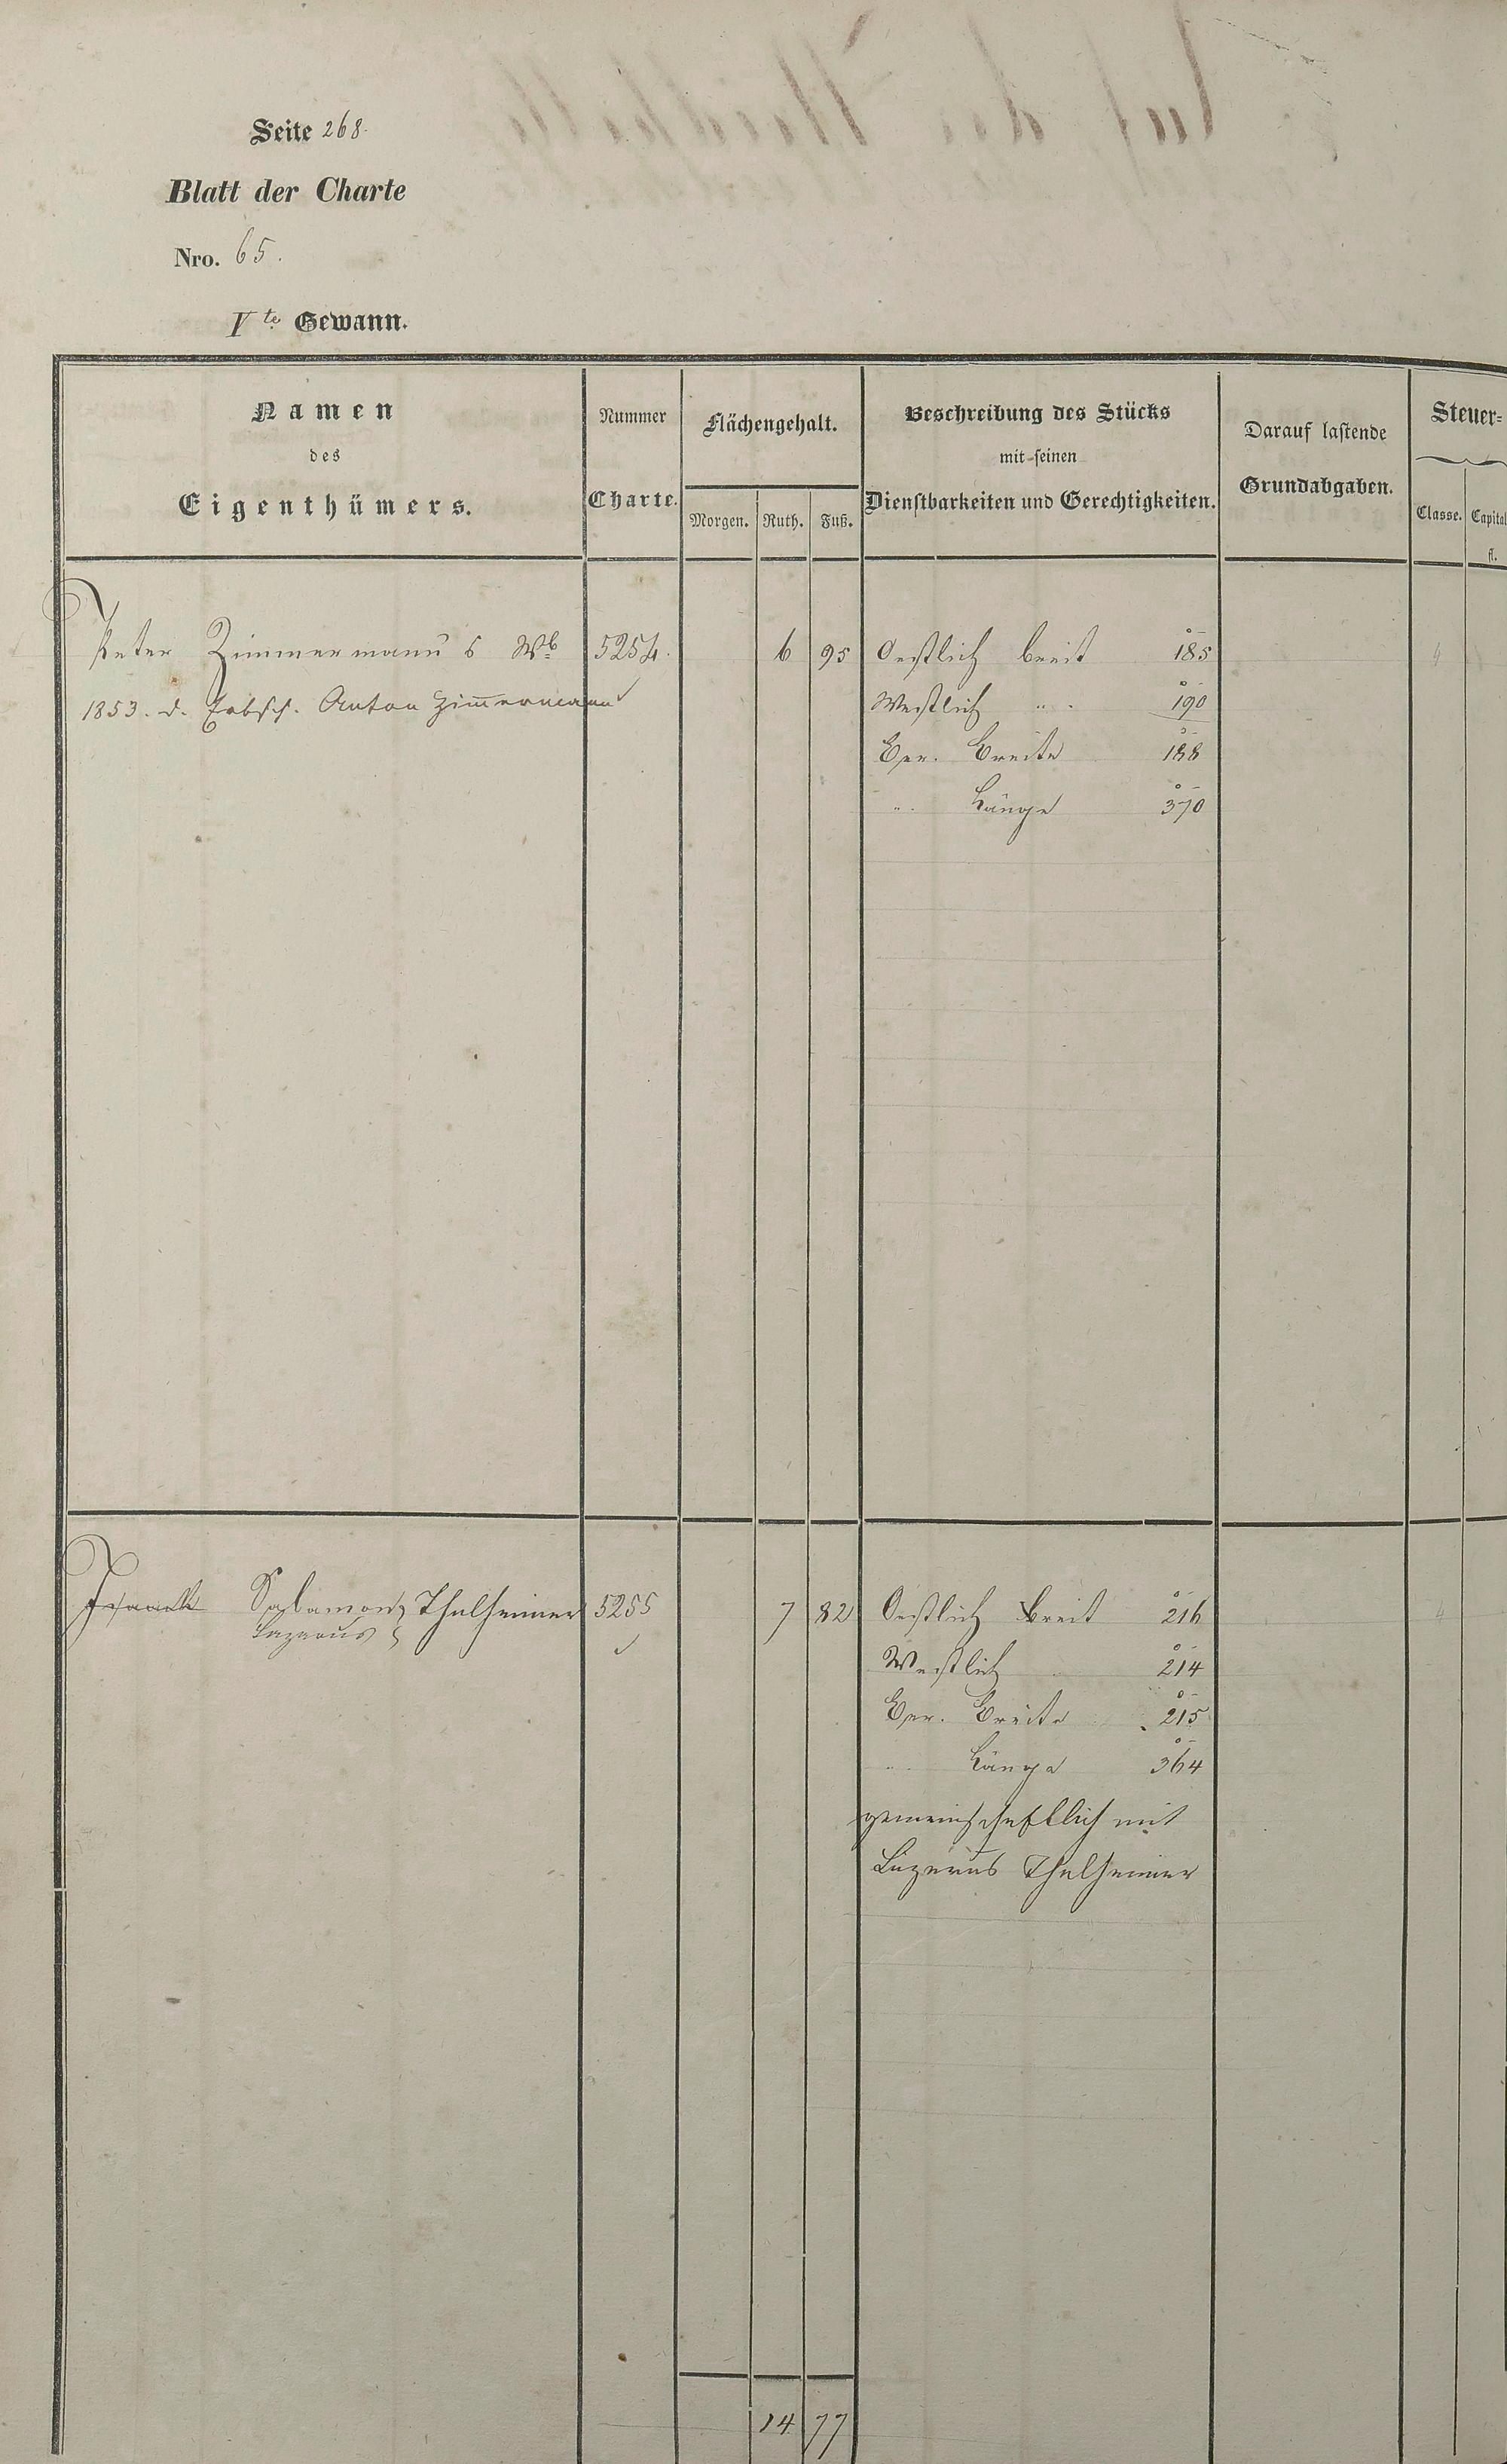 Seite 268.
Blatt der Charte
Nro. 65.
Vte Gewann.
Namen
des
Eigenthümers.
Nummer
Charte.
Flächengehalt.
Morgen. Ruth. Fuß.
Beschreibung des Stücks
mit seinen
Dienstbarkeiten und Gerechtigkeiten.
Darauf lastende
Grundabgaben.
Steuer-
Classe. Capital
fl.
Peter Zimmermann s Wb 5254. 6 95 Oestlich breit 185
1853. d. Erbsch. Anton Zimmermann Westlich " 190
Ger. Breite 188
" Länge 370
Isaack Salamon Thalheimer 5255 7 82 Oestlich breit 216
Lazarus
Westlich 214
Ger. Breite 215
" Länge 364
gemeinschaftlich mit
Lazarus Thalheimer
14 77